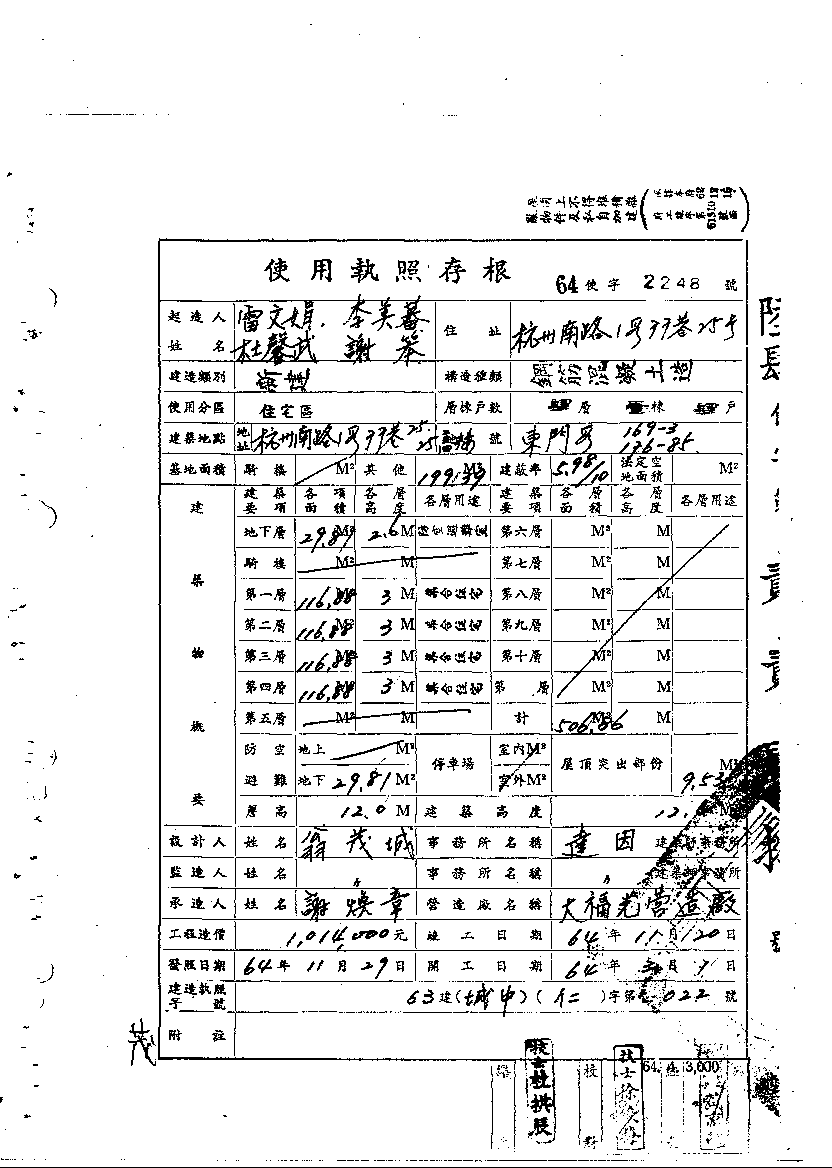 使用執照存根
64 使字 2248 號
起造人姓名 雷文娟. 李美蓁 杜馨武 謝笨 住址 杭州南路1段77巷25号
建造類別 構造種類 鋼筋混凝土造
使用分區 住宅區 層棟戶數 層 棟 戶
建築地點 地址 杭州南路1段77巷25 號 東門段 169-3 176-85
基地面積 騎樓 M² 其他 建蔽率 5.98/10 法定空地面積 M²
建築物概要 建築要項 各項面積 各層高度 各層用途 建築要項 各層面積 各層高度 各層用途
地下層 29.81 M² 2.6 M 第六層 M² M
騎樓 M² M 第七層 M² M
第一層 116.88 M² 3 M 集合住宅 第八層 M² M
第二層 116.88 M² 3 M 集合住宅 第九層 M² M
第三層 116.88 M² 3 M 集合住宅 第十層 M² M
第四層 116.88 M² 3 M 集合住宅 第 層 M² M
第五層 M² M 計 506.86 M² M
防空避難 地上 M² 停車場 室內M² 屋頂突出部份 9.53 M²
地下 29.81 M² 室外M²
簷高 12.0 M 建築高度 12.
設計人 姓名 翁茂城 事務所名稱 建因 建築師事務所
監造人 姓名 〃 事務所名稱 〃 建築師事務所
承造人 姓名 謝煥章 營造廠名稱 大福光營造廠
工程造價 1,014,000元 竣工日期 64年11月20日
發照日期 64年11月29日 開工日期 64年 月 日
建造執照字號 63建(城中)(仁)字第 022 號
附註
茂
64. 4. 3,000
校對